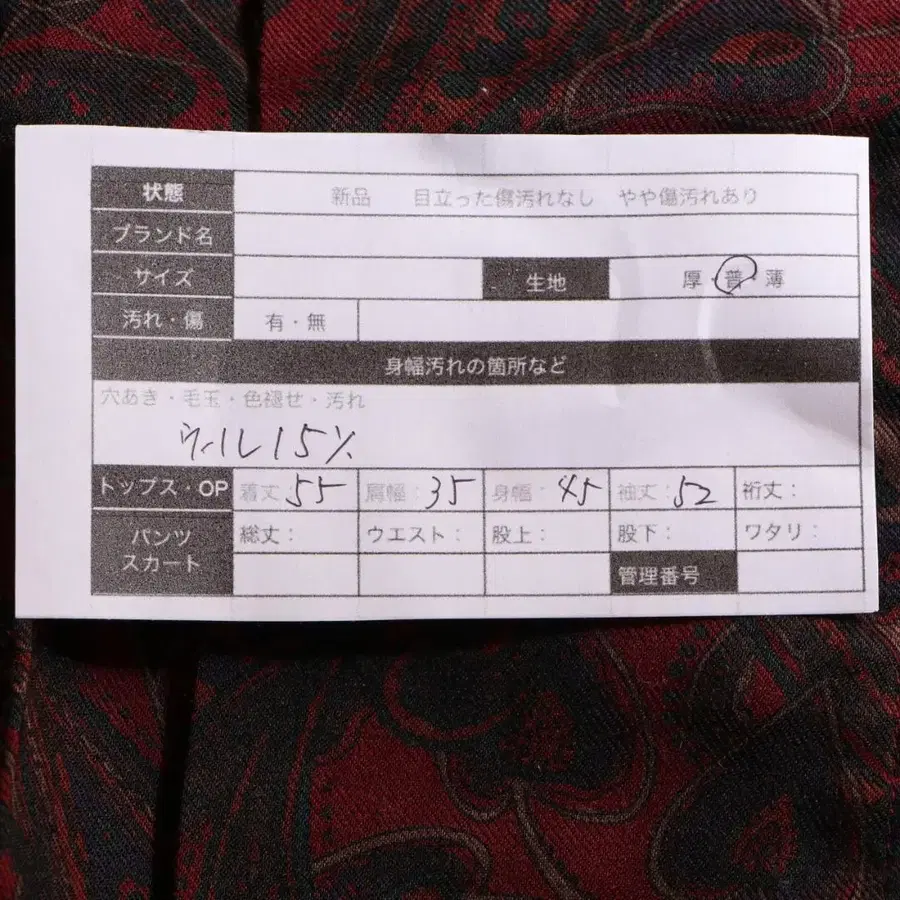 状態 新品 目立った傷汚れなし やや傷汚れあり
ブランド名
サイズ 生地 厚・普・薄
汚れ・傷 有・無
身幅汚れの箇所など
穴あき・毛玉・色褪せ・汚れ
ウール15%
トップス・OP 着丈:55 肩幅:35 身幅:45 袖丈:52 裄丈:
パンツ 総丈: ウエスト: 股上: 股下: ワタリ:
スカート 管理番号